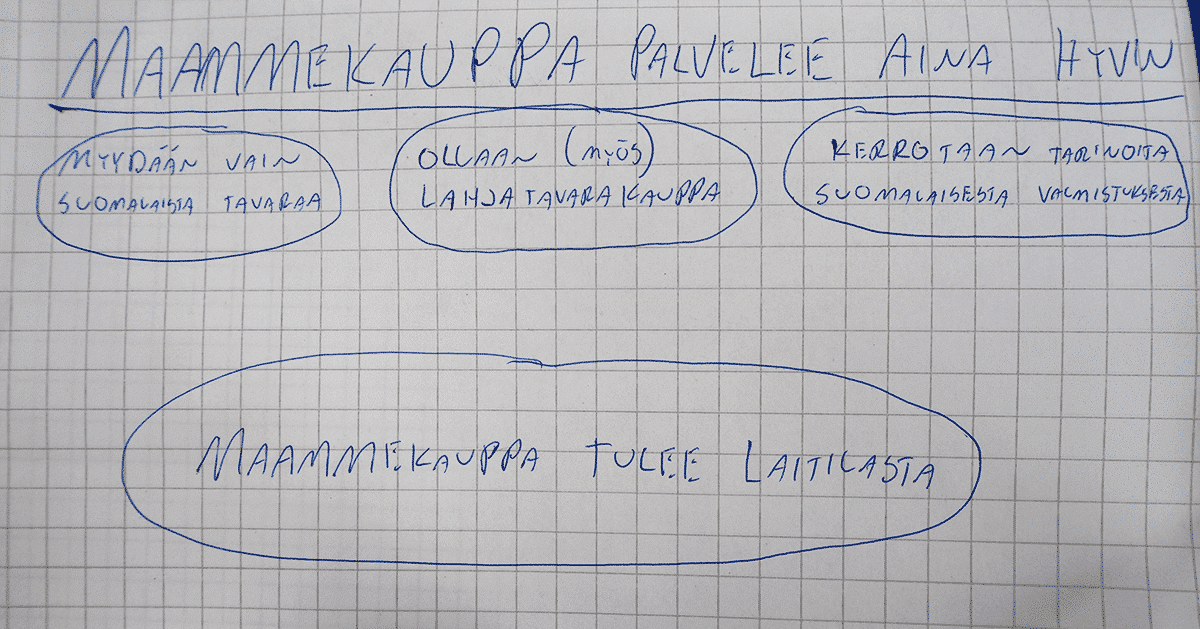 MAAMMEKAUPPA PALVELEE AINA HYVIN
MYYDÄÄN VAIN
SUOMALAISTA TAVARAA
OLLAAN (MYÖS)
LAHJATAVARAKAUPPA
KERROTAAN TARINOITA
SUOMALAISESTA VALMISTUKSESTA
MAAMMEKAUPPA TULEE LAITILASTA